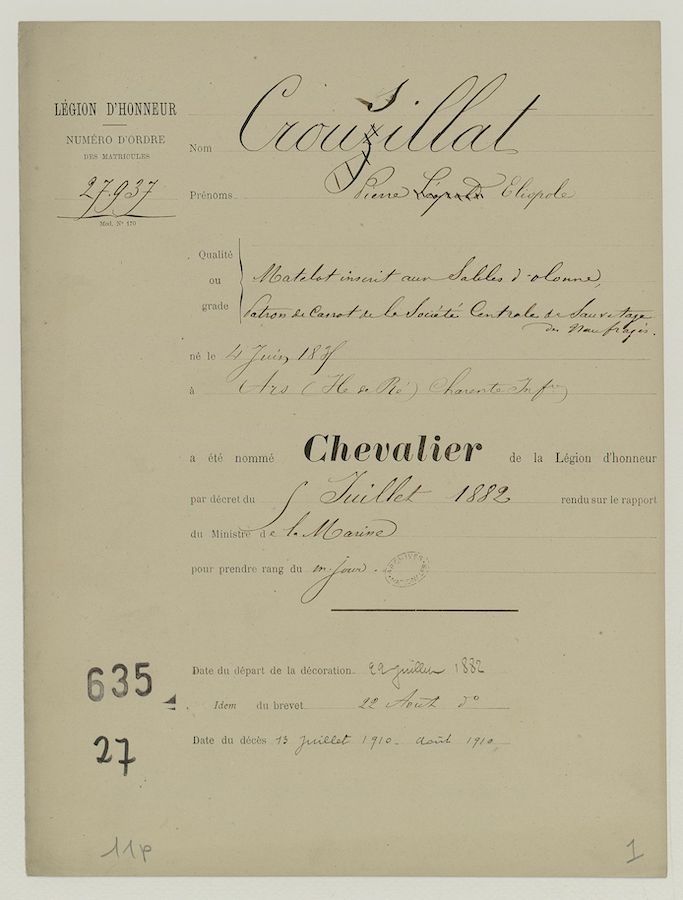 LÉGION D'HONNEUR
NUMÉRO D'ORDRE
DES MATRICULES
27.937
Mod. N° 170
Nom Crouzillat
s
Prénoms Pierre Eliopole
Qualité ou grade
Matelot inscrit aux Sables d'olonne,
Patron de Canot de la Société Centrale de Sauvetage
des Naufragés.
né le 4 Juin 183
à Ars (Ile de Ré) Charente Infre
a été nommé Chevalier de la Légion d'honneur
par décret du Juillet 1882 rendu sur le rapport
du Ministre de la Marine
pour prendre rang du jour.
ARCHIVES NATIONALES
Date du départ de la décoration 22 juillet 1882
635
Idem du brevet 22 Août do
27
Date du décès 13 juillet 1910 - août 1910
11p
1